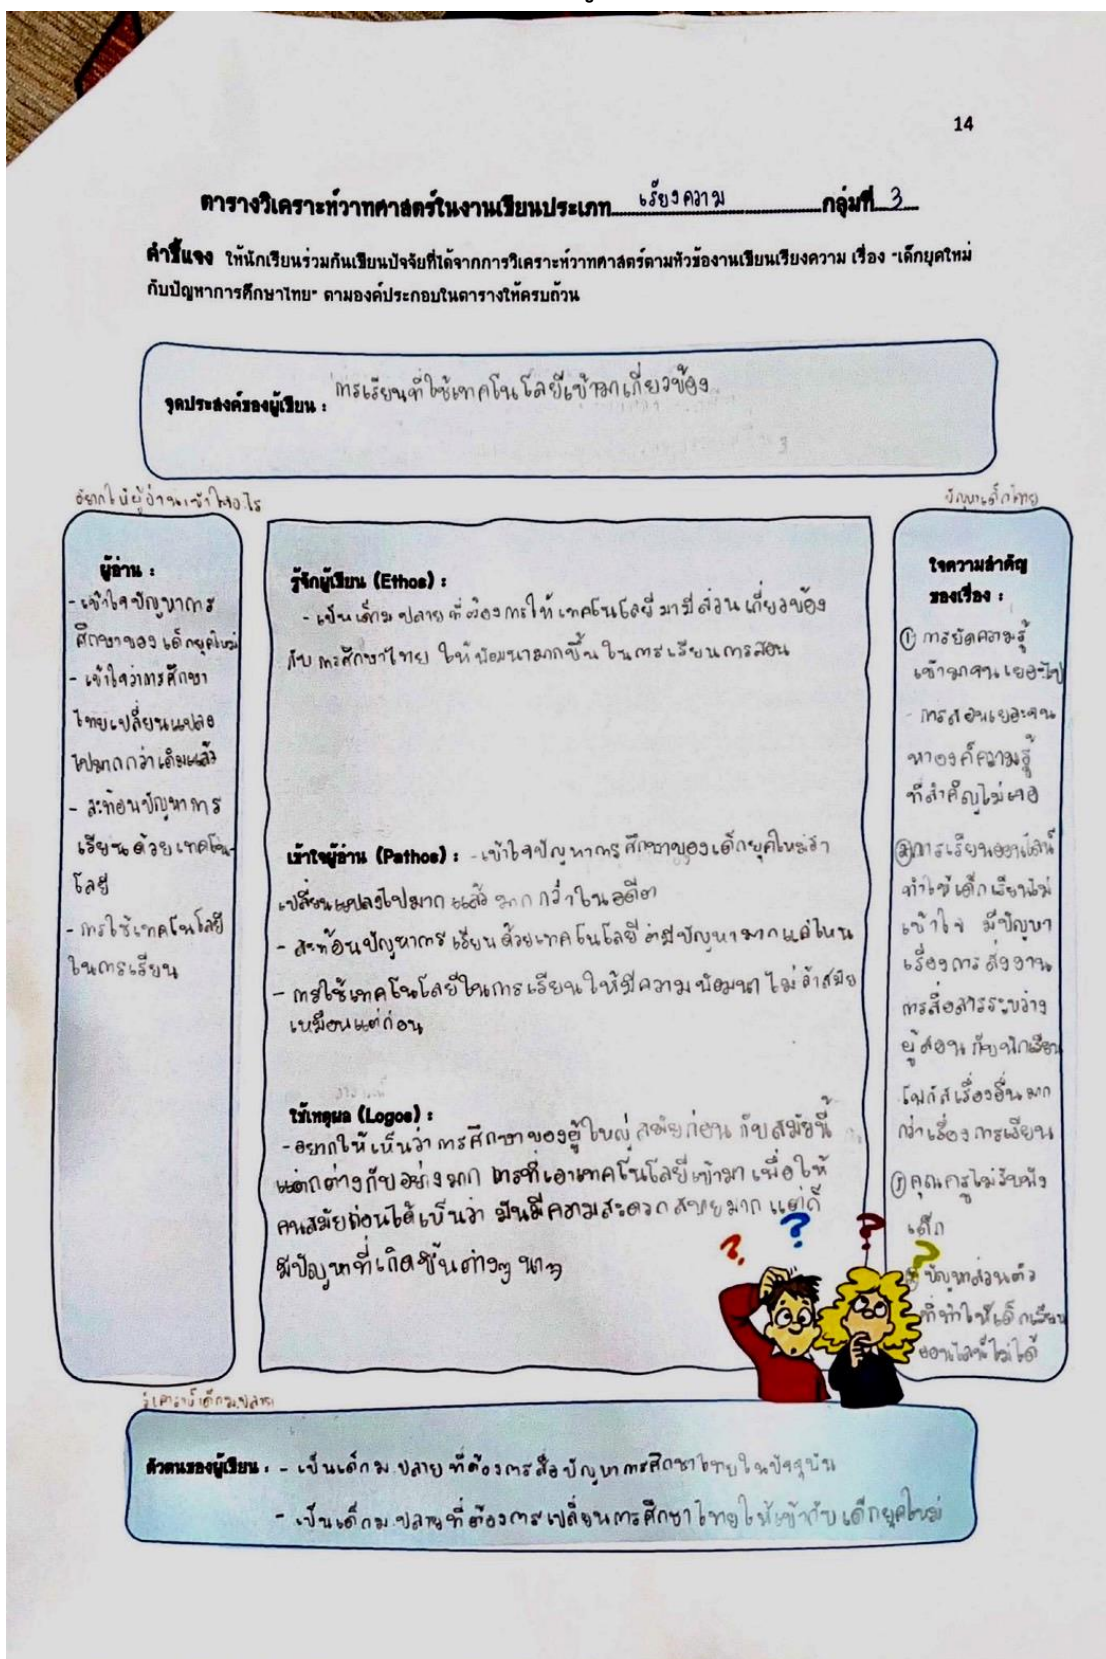 14
ตารางวิเคราะห์วาทศาสตร์ในงานเขียนประเภท เรียงความ กลุ่มที่ 3
คำชี้แจง ให้นักเรียนร่วมกันเขียนปัจจัยที่ได้จากการวิเคราะห์วาทศาสตร์ตามหัวข้องานเขียนเรียงความ เรื่อง "เด็กยุคใหม่
กับปัญหาการศึกษาไทย" ตามองค์ประกอบในตารางให้ครบถ้วน
จุดประสงค์ของผู้เขียน : การเรียนที่ใช้เทคโนโลยีเข้ามาเกี่ยวข้อง
อยากให้ผู้อ่านเข้าใจอะไร
ผู้อ่าน :
- เข้าใจปัญหาการ
ศึกษาของเด็กยุคใหม่
- เข้าใจว่าการศึกษา
ไทยเปลี่ยนแปลง
ไปมากกว่าเดิมแล้ว
- สะท้อนปัญหาการ
เรียนด้วยเทคโน-
โลยี
- การใช้เทคโนโลยี
ในการเรียน
รู้จักผู้เขียน (Ethos) :
- เป็นเด็กม.ปลาย ที่ต้องการให้เทคโนโลยีมามีส่วนเกี่ยวข้อง
กับการศึกษาไทย ให้พัฒนามากขึ้นในการเรียนการสอน
เร้าใจผู้อ่าน (Pathos) : - เข้าใจปัญหาการศึกษาของเด็กยุคใหม่ว่า
เปลี่ยนแปลงไปมากแล้ว มากกว่าในอดีต
- สะท้อนปัญหาการเรียนด้วยเทคโนโลยีว่ามีปัญหามากแค่ไหน
- การใช้เทคโนโลยีในการเรียนให้มีความพัฒนา ไม่ล้าสมัย
เหมือนแต่ก่อน
ใช้เหตุผล (Logos) :
- อยากให้เห็นว่าการศึกษาของผู้ใหญ่สมัยก่อน กับสมัยนี้
แตกต่างกันอย่างมาก การที่เอาเทคโนโลยีเข้ามา เพื่อให้
คนสมัยก่อนได้เห็นว่า มันมีความสะดวกสบายมาก แต่ก็
มีปัญหาที่เกิดขึ้นต่างๆ นาๆ
ปัญหาเด็กไทย
ใจความสำคัญ
ของเรื่อง :
① การยัดความรู้
เข้ามาจนเยอะไป
- การสอนเยอะจน
หาองค์ความรู้
ที่สำคัญไม่เจอ
② การเรียนออนไลน์
ทำให้เด็กเรียนไม่
เข้าใจ มีปัญหา
เรื่องการส่งงาน
การสื่อสารระหว่าง
ผู้สอนกับนักเรียน
โฟกัสเรื่องอื่นมาก
กว่าเรื่องการเรียน
③ คุณครูไม่รับฟัง
เด็ก
④ ปัญหาส่วนตัว
ที่ทำให้เด็กเรียน
ออนไลน์ไม่ได้
วิเคราะห์เด็กม.ปลาย
ตัวตนของผู้เขียน : - เป็นเด็กม.ปลาย ที่ต้องการสื่อปัญหาการศึกษาไทยในปัจจุบัน
- เป็นเด็กม.ปลายที่ต้องการเปลี่ยนการศึกษาไทยให้เข้ากับเด็กยุคใหม่